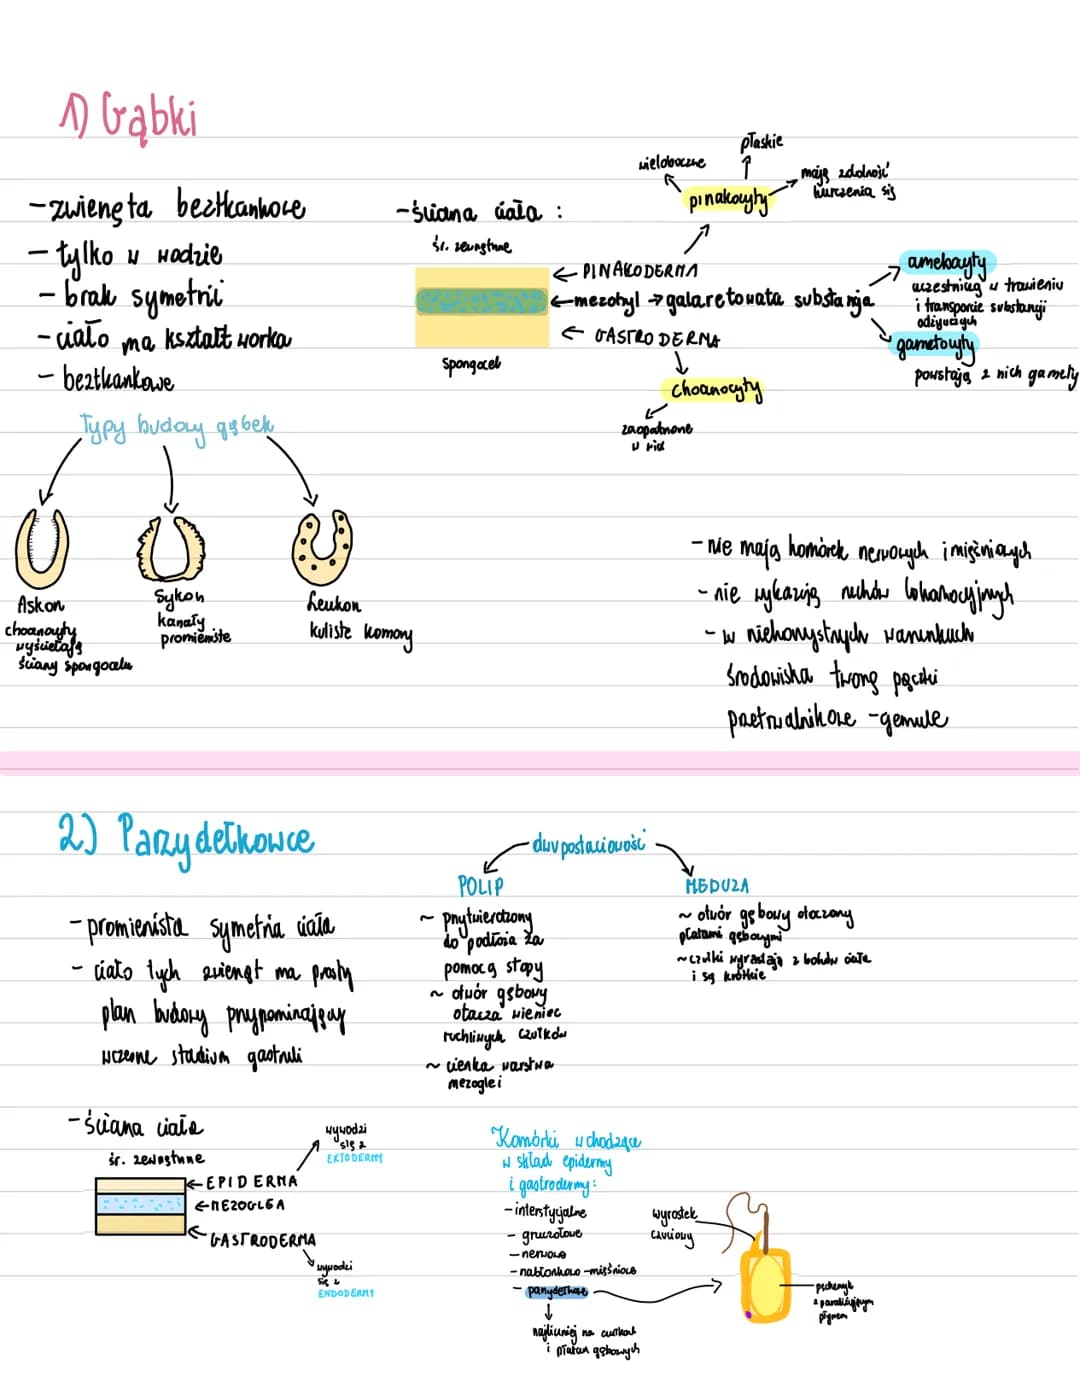 1) Gąbki
-zwierzęta beztkankowe
- tylko w wodzie
- brak symetrii
- ciało ma kształt worka
- beztkankowe
-ściana ciała :
śr. zewnętrzne
Spongocel
← PINAKODERMA
←mezohyl → galaretowata substancja
← GASTRODERMA
pinakocyty
wieloboczne
płaskie
mają zdolność
kurczenia się
amebocyty
uczestniczą w trawieniu
i transporcie substancji
odżywczych
gametocyty
powstają z nich gamety
choanocyty
zaopatrzone
w wić
Typy budowy gąbek
Askon
choanocyty
wyścielają
ściany spongocelu
Sykon
kanały
promieniste
Leukon
kuliste komory
- nie mają komórek nerwowych i mięśniowych
- nie wykazują ruchów lokomocyjnych
- w niekorzystnych warunkach
środowiska tworzą pączki
przetrwalnikowe -gemule
2) Parzydełkowce
- promienista symetria ciała
- ciało tych zwierząt ma prosty
plan budowy przypominający
wczesne stadium gastruli
dwupostaciowość
POLIP
~ przytwierdzony
do podłoża za
pomocą stopy
~ otwór gębowy
otacza wieniec
ruchliwych czułków
~ cienka warstwa
mezoglei
MEDUZA
~ otwór gębowy otoczony
płatami gębowymi
~czułki wyrastają z boków ciała
i są krótkie
-ściana ciała
śr. zewnętrzne
←EPIDERMA
←MEZOGLEA
GASTRODERMA
wywodzi
się z
EKTODERMY
wywodzi
się z
ENDODERMY
Komórki wchodzące
w skład epidermy
i gastrodermy:
- interstycjalne
- gruczołowe
- nerwowe
- nabłonkowo-mięśniowe
- parzydełkowe
najliczniej na czułkach
i płatach gębowych
wyrostek
czuciowy
pęcherzyk
z paraliżującym
płynem